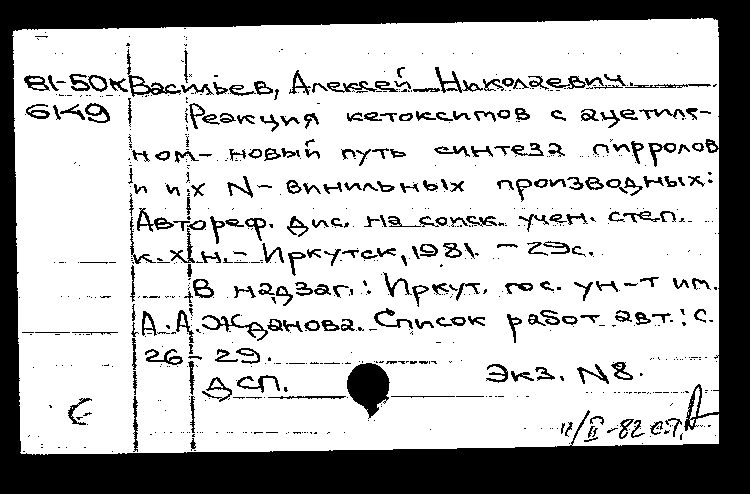 81-50к Васильев, Алексей Николаевич.
6149 Реакция кетоксимов с ацетиле-
ном- новый путь синтеза пирролов
и их N-винильных производных:
Автореф. дис. на соиск. учен. степ.
к.х.н. - Иркутск, 1981. - 29с.
В надзаг.: Иркут. гос. ун-т им.
А.А. Жданова. Список работ авт.: с.
26-29.
ДСП. Экз. N8.
11/II-82